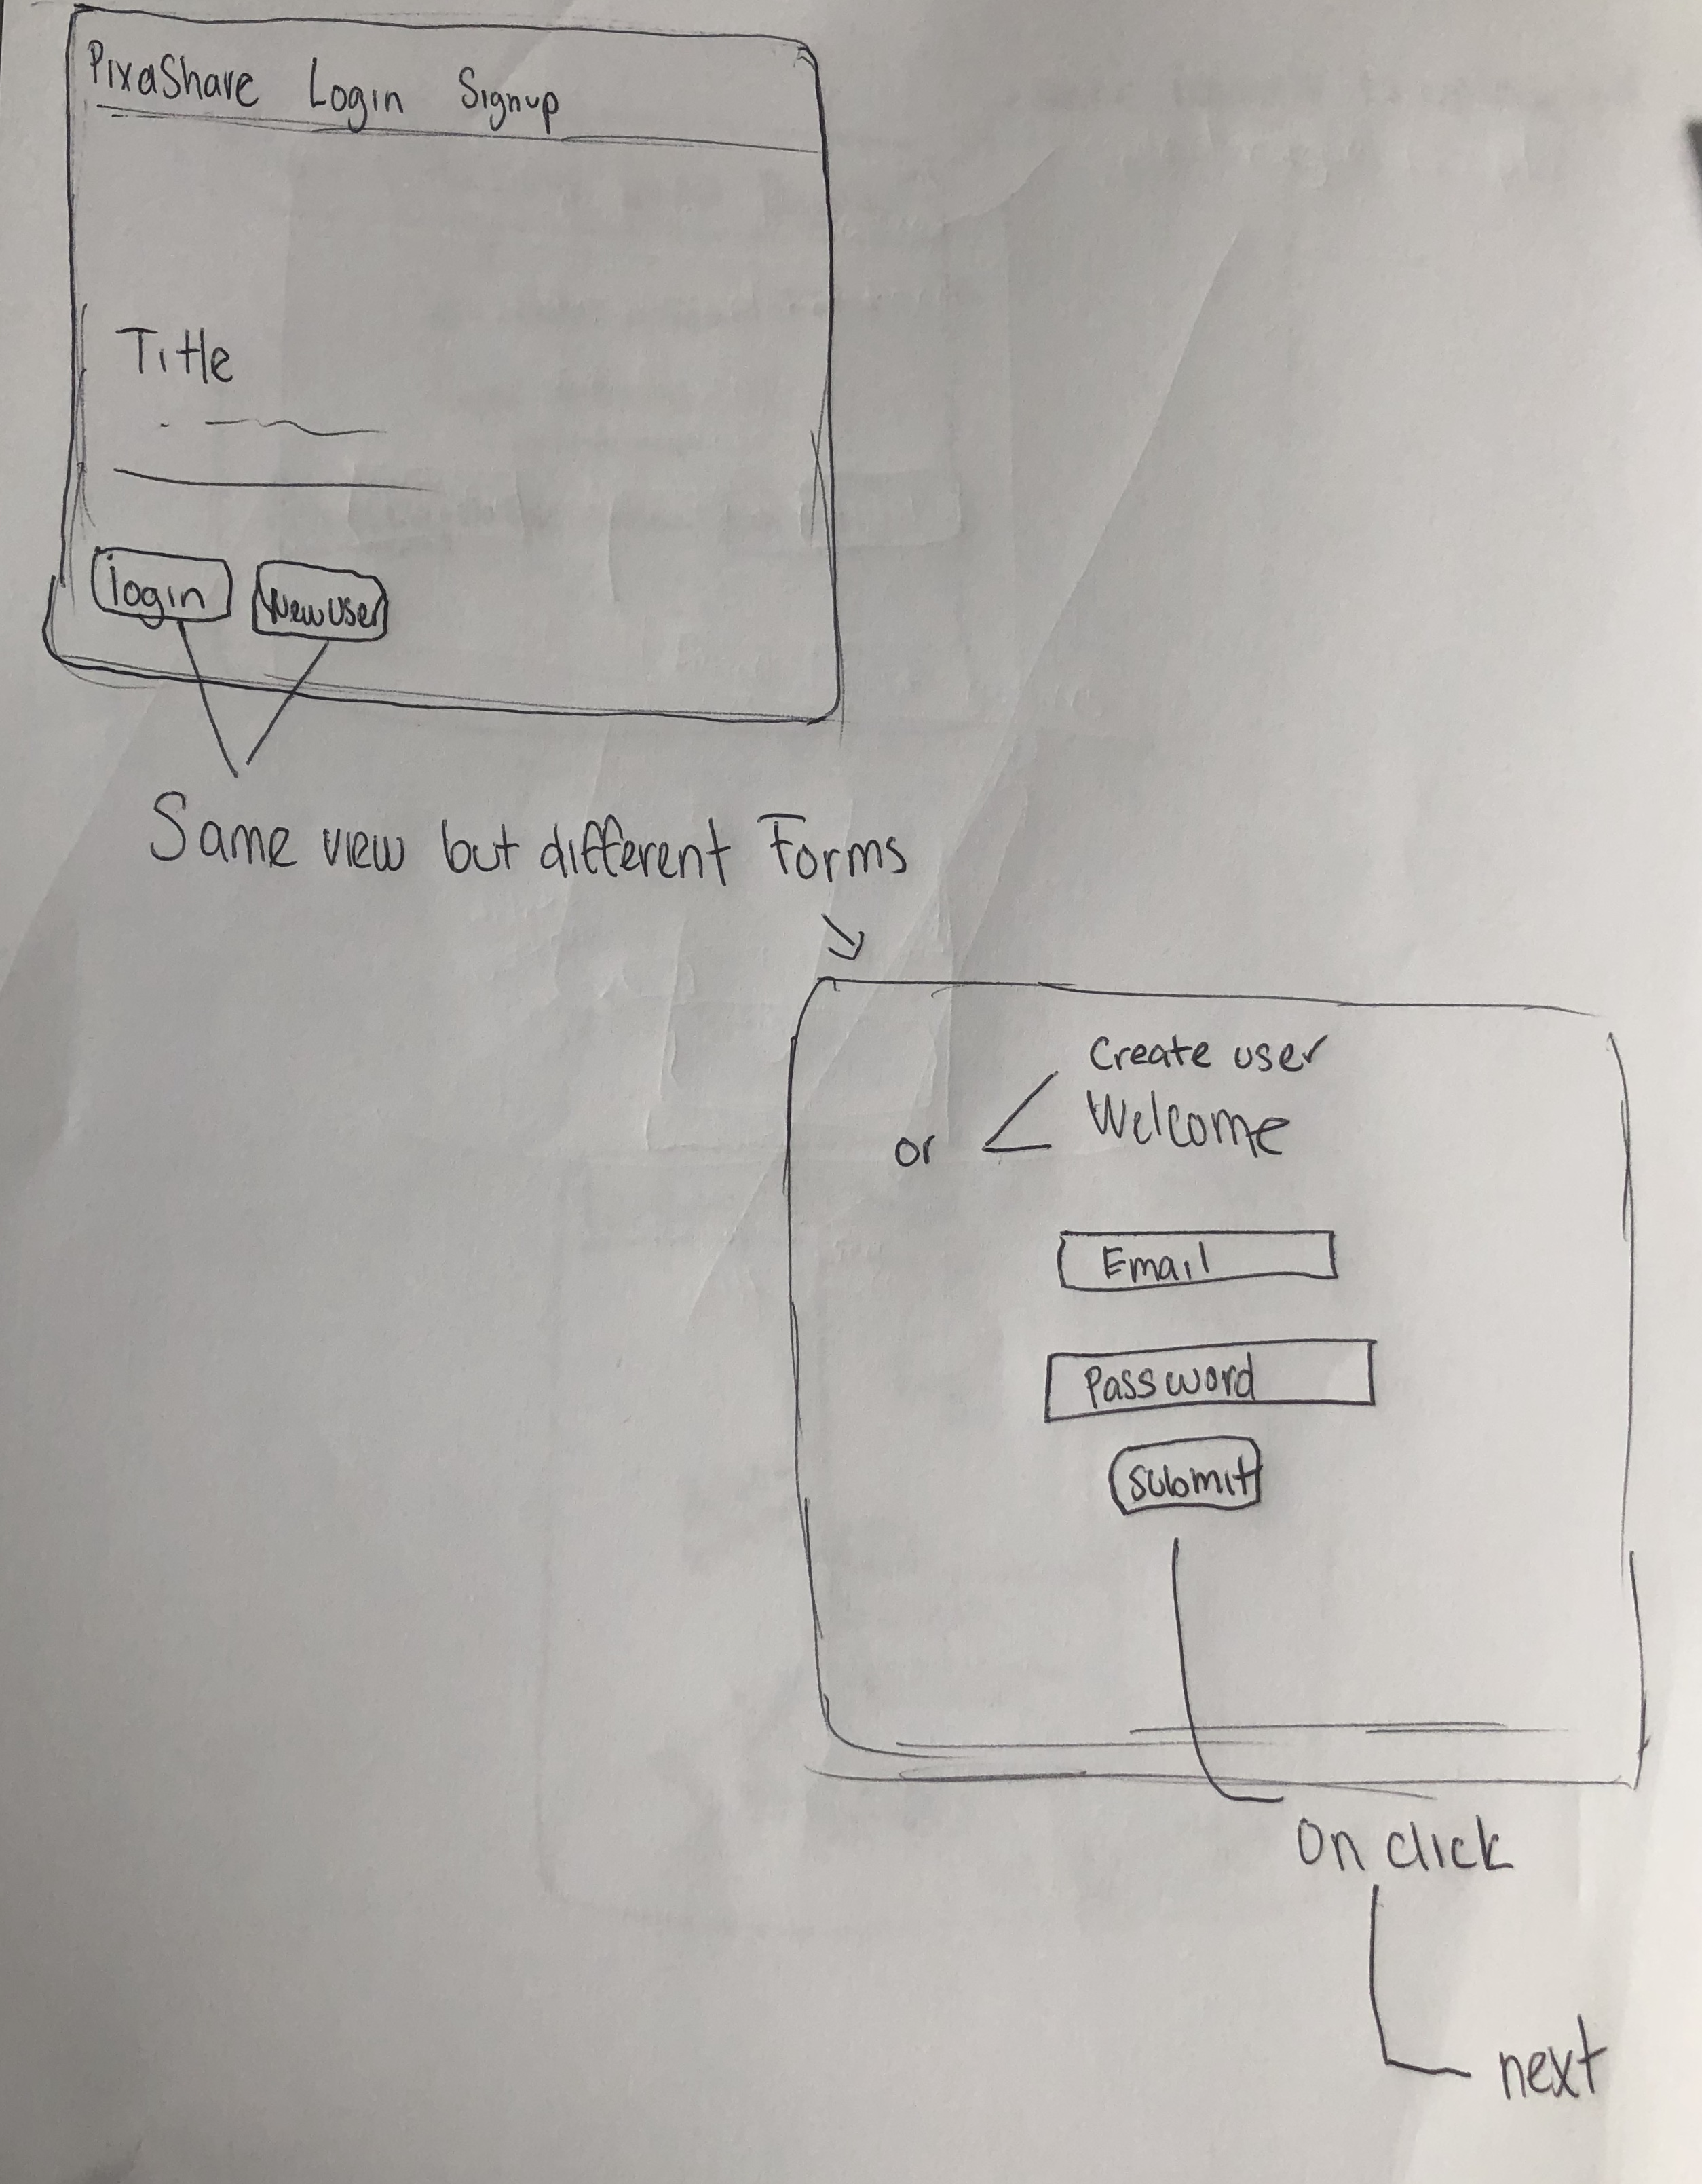 PixaShare Login Signup
Title
login NewUser
Same view but different Forms
Create user
or Welcome
Email
Password
Submit
On click
next